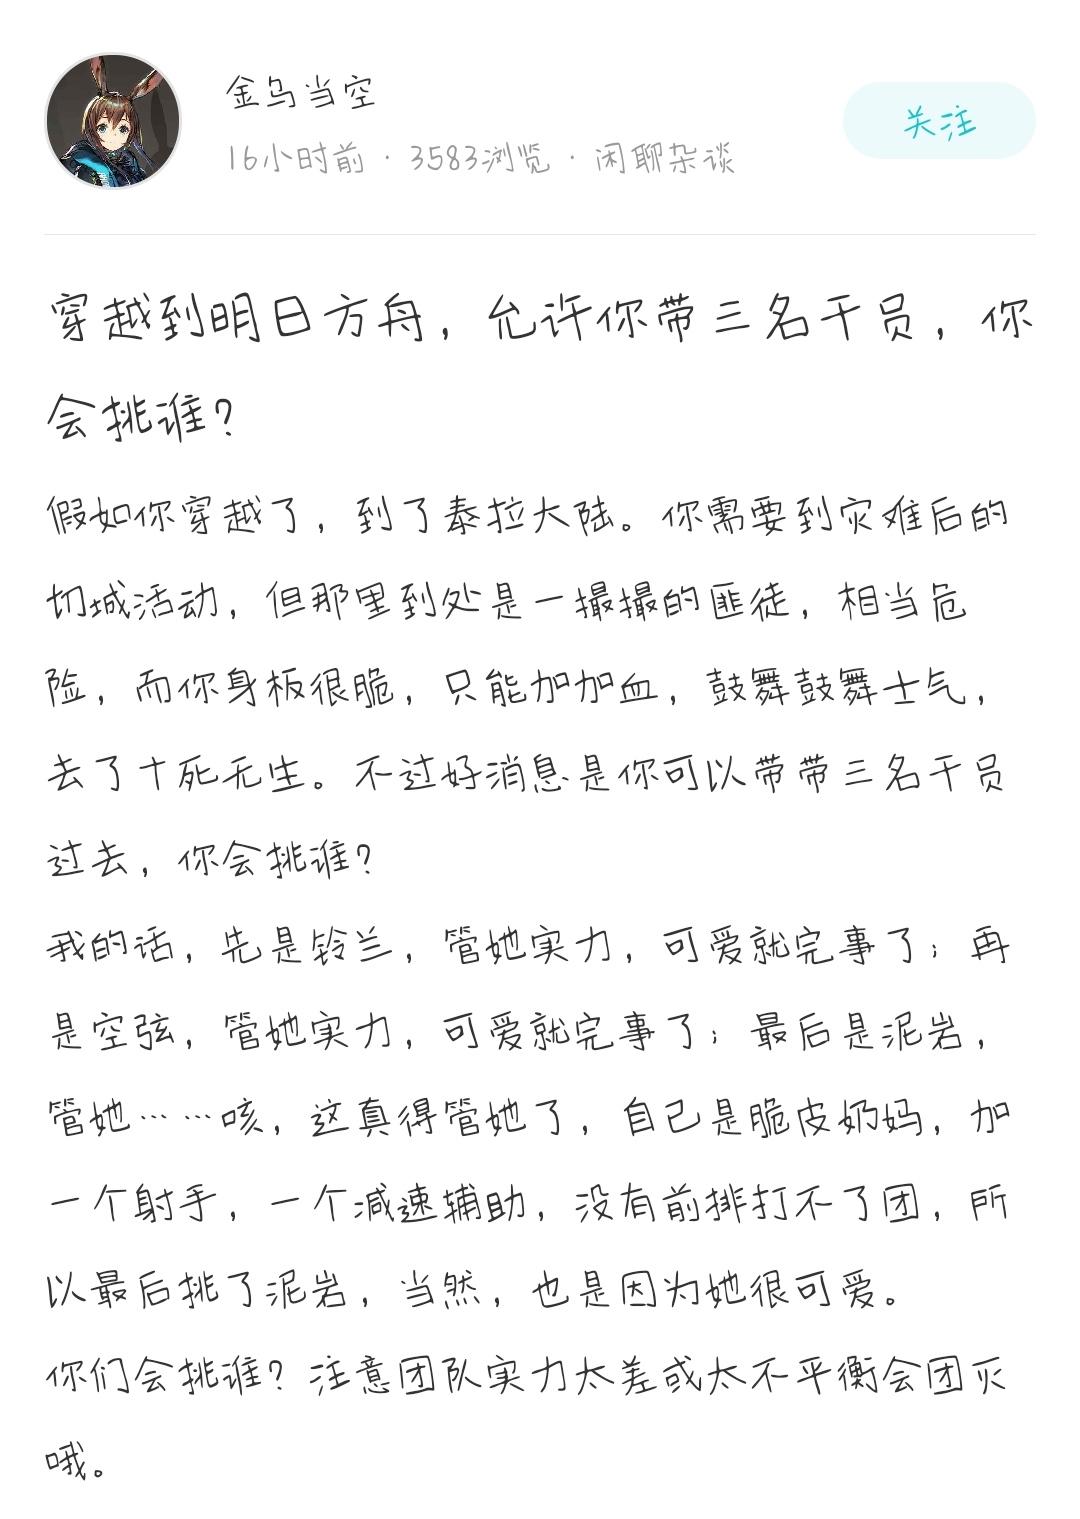 金乌当空
关注
16小时前 · 3583浏览 · 闲聊杂谈
穿越到明日方舟，允许你带三名干员，你
会挑谁？
假如你穿越了，到了泰拉大陆。你需要到灾难后的
切城活动，但那里到处是一撮撮的匪徒，相当危
险，而你身板很脆，只能加加血，鼓舞鼓舞士气，
去了十死无生。不过好消息是你可以带带三名干员
过去，你会挑谁？
我的话，先是铃兰，管她实力，可爱就完事了；再
是空弦，管她实力，可爱就完事了；最后是泥岩，
管她……咳，这真得管她了，自己是脆皮奶妈，加
一个射手，一个减速辅助，没有前排打不了团，所
以最后挑了泥岩，当然，也是因为她很可爱。
你们会挑谁？注意团队实力太差或太不平衡会团灭
哦。